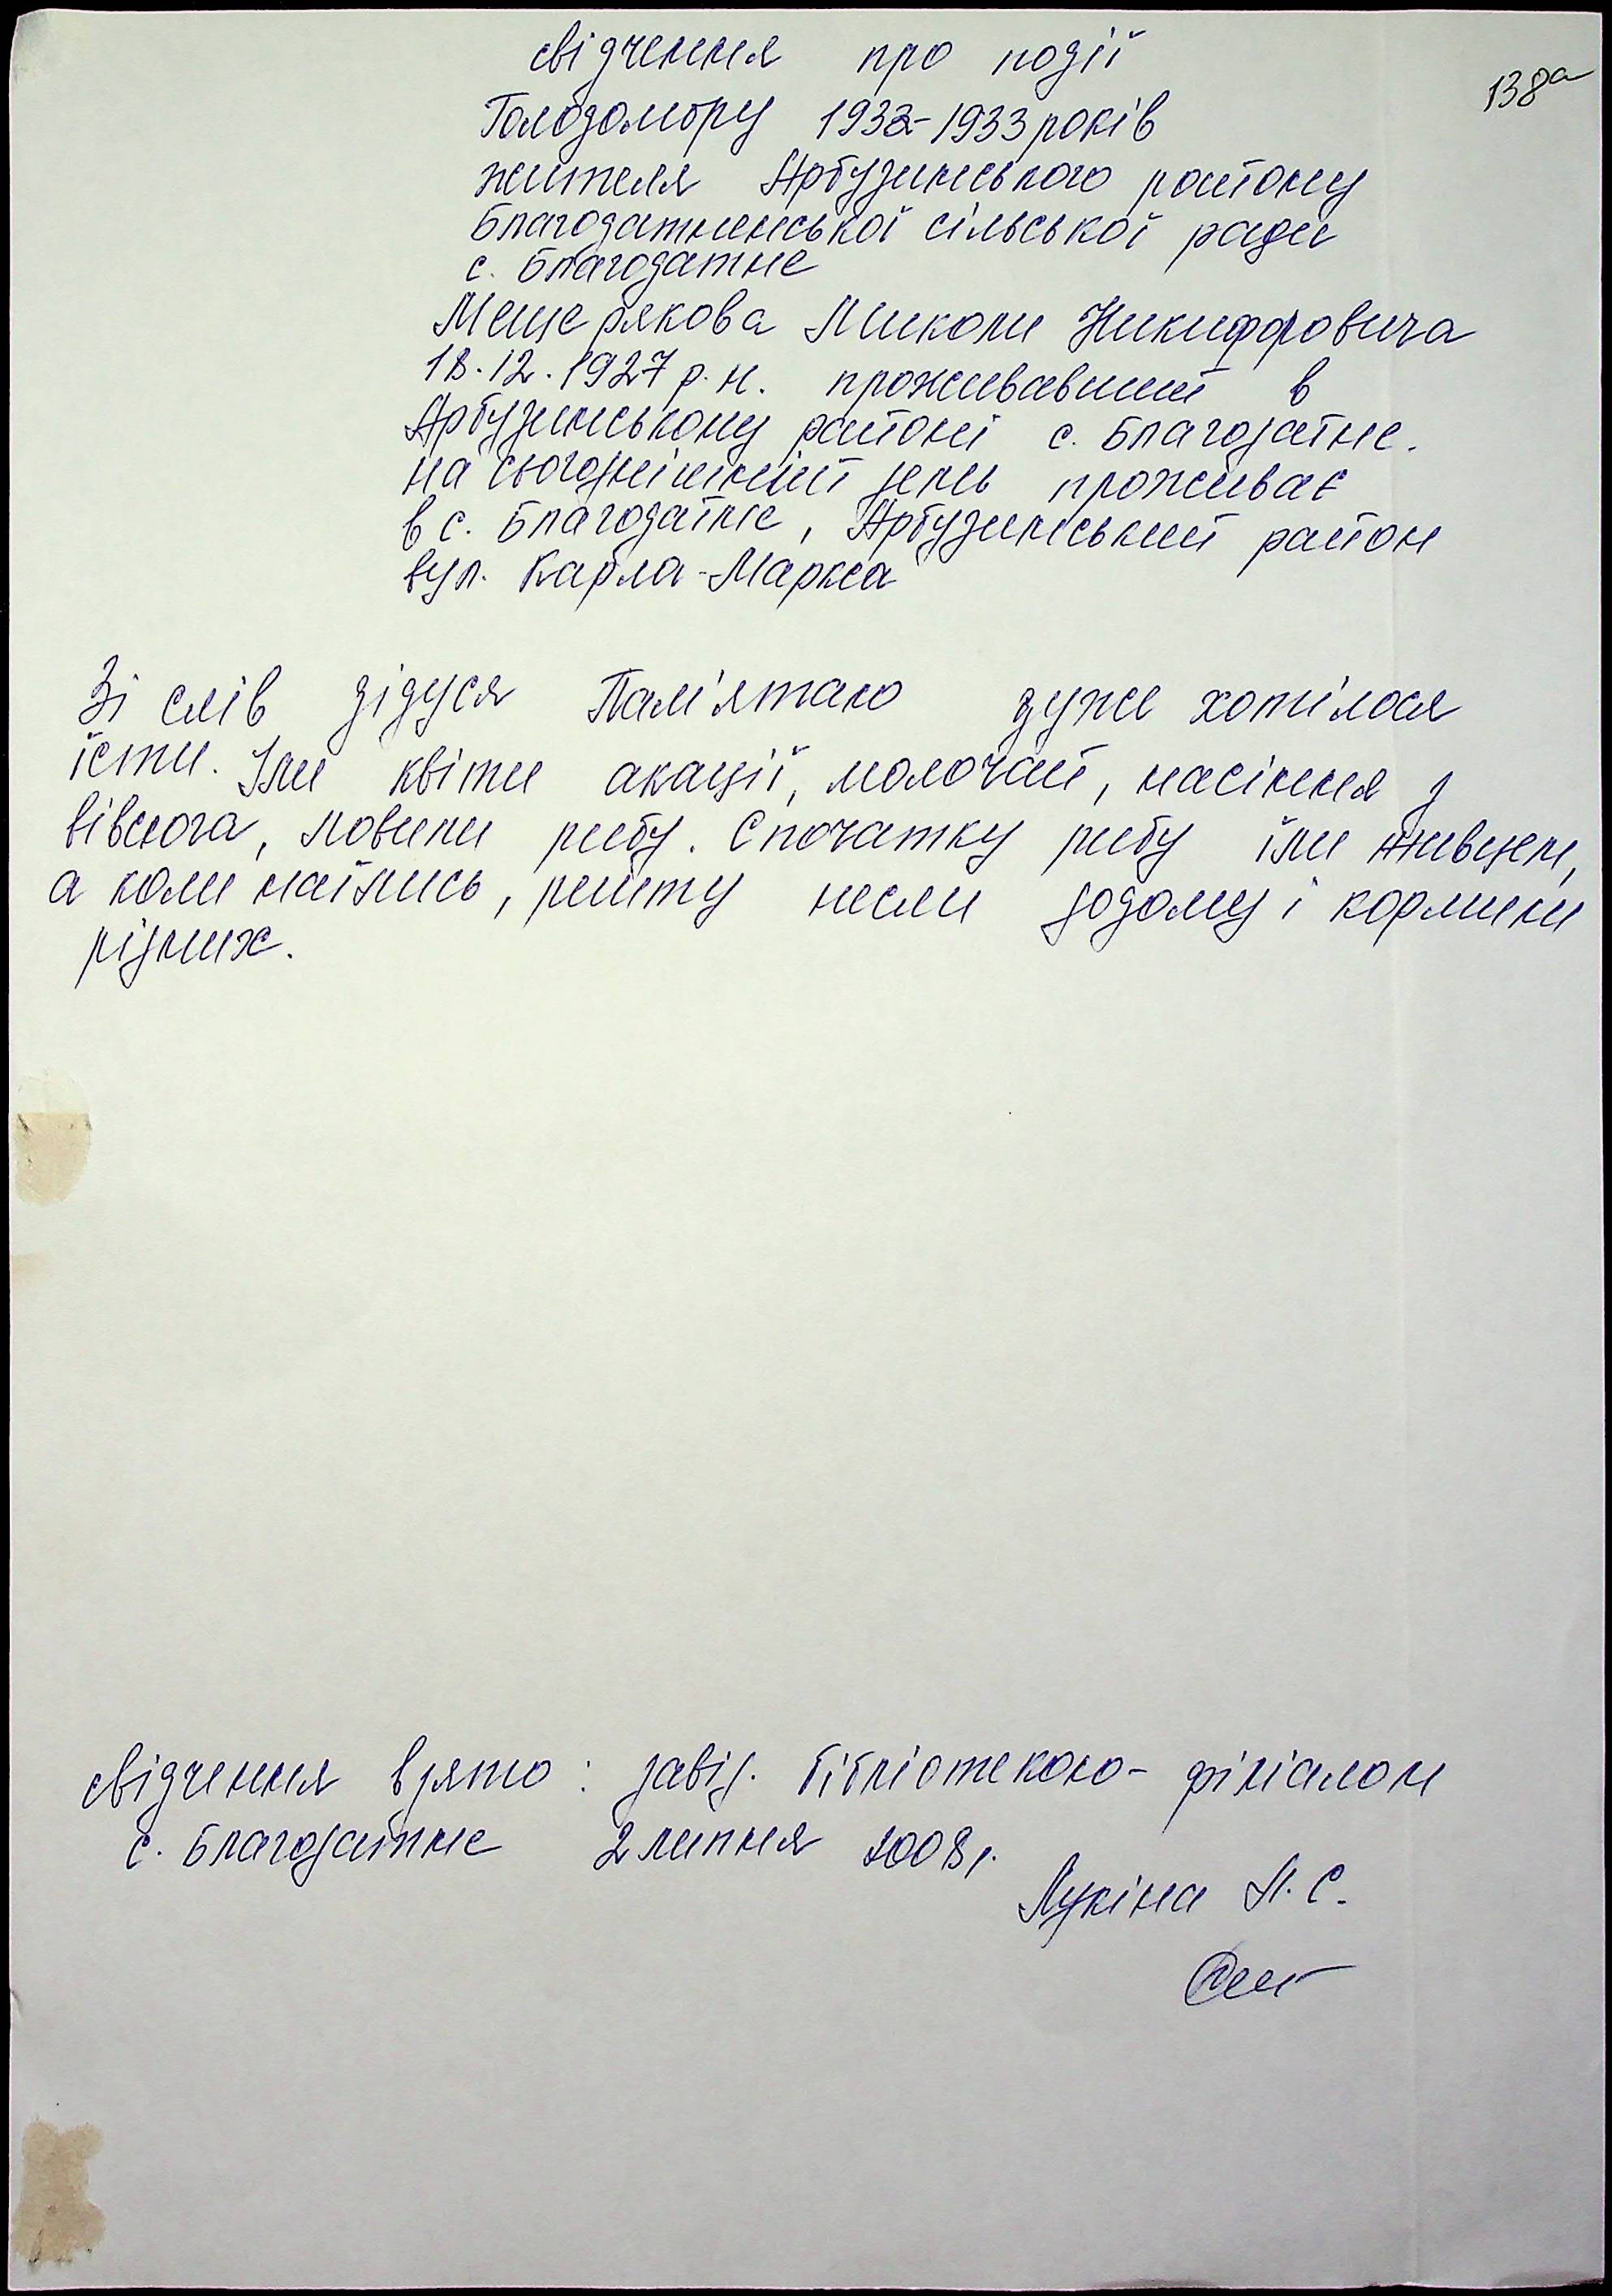 138а
свідчення про події
Голодомору 1932-1933 років
жителя Арбузинського району
Благодатненської сільської ради
с. Благодатне
Мещерякова Миколи Никифровича
18.12.1927 р.н. проживавший в
Арбузинському районі с. Благодатне.
на сьогоднішній день проживає
в с. Благодатне, Арбузинський район
вул. Карла-Маркса
Зі слів дідуся Пам'ятаю дуже хотілося
їсти. Їли квіти акації, молочай, насіння з
вівсюга, ловили рибу. Спочатку рибу їли живцем,
а коли наїлись, решту несли додому і кормили
рідних.
свідчення взято: завід. бібліотекою-філіалом
с. Благодатне 2 липня 2008р.
Лукіна Л.С.